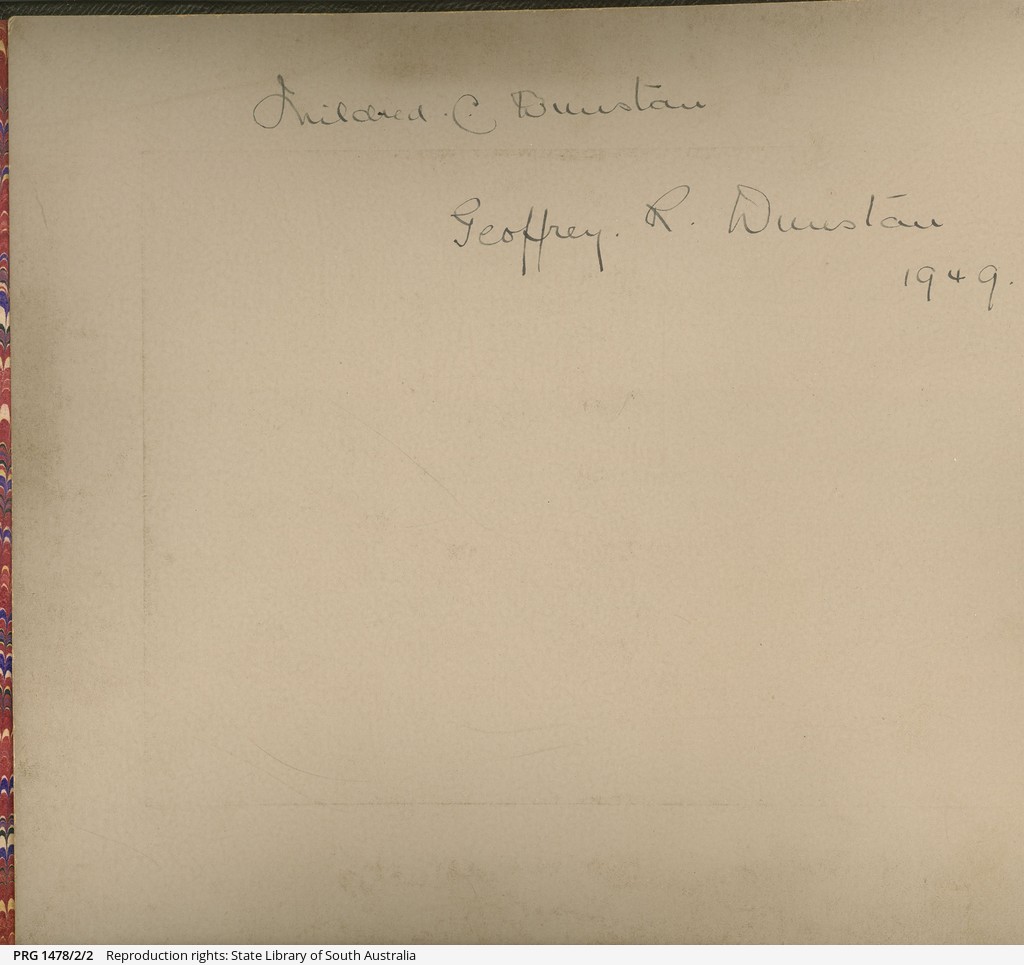 Mildred. C. Dunstan
Geoffrey. R. Dunstan
1949.
PRG 1478/2/2 Reproduction rights: State Library of South Australia